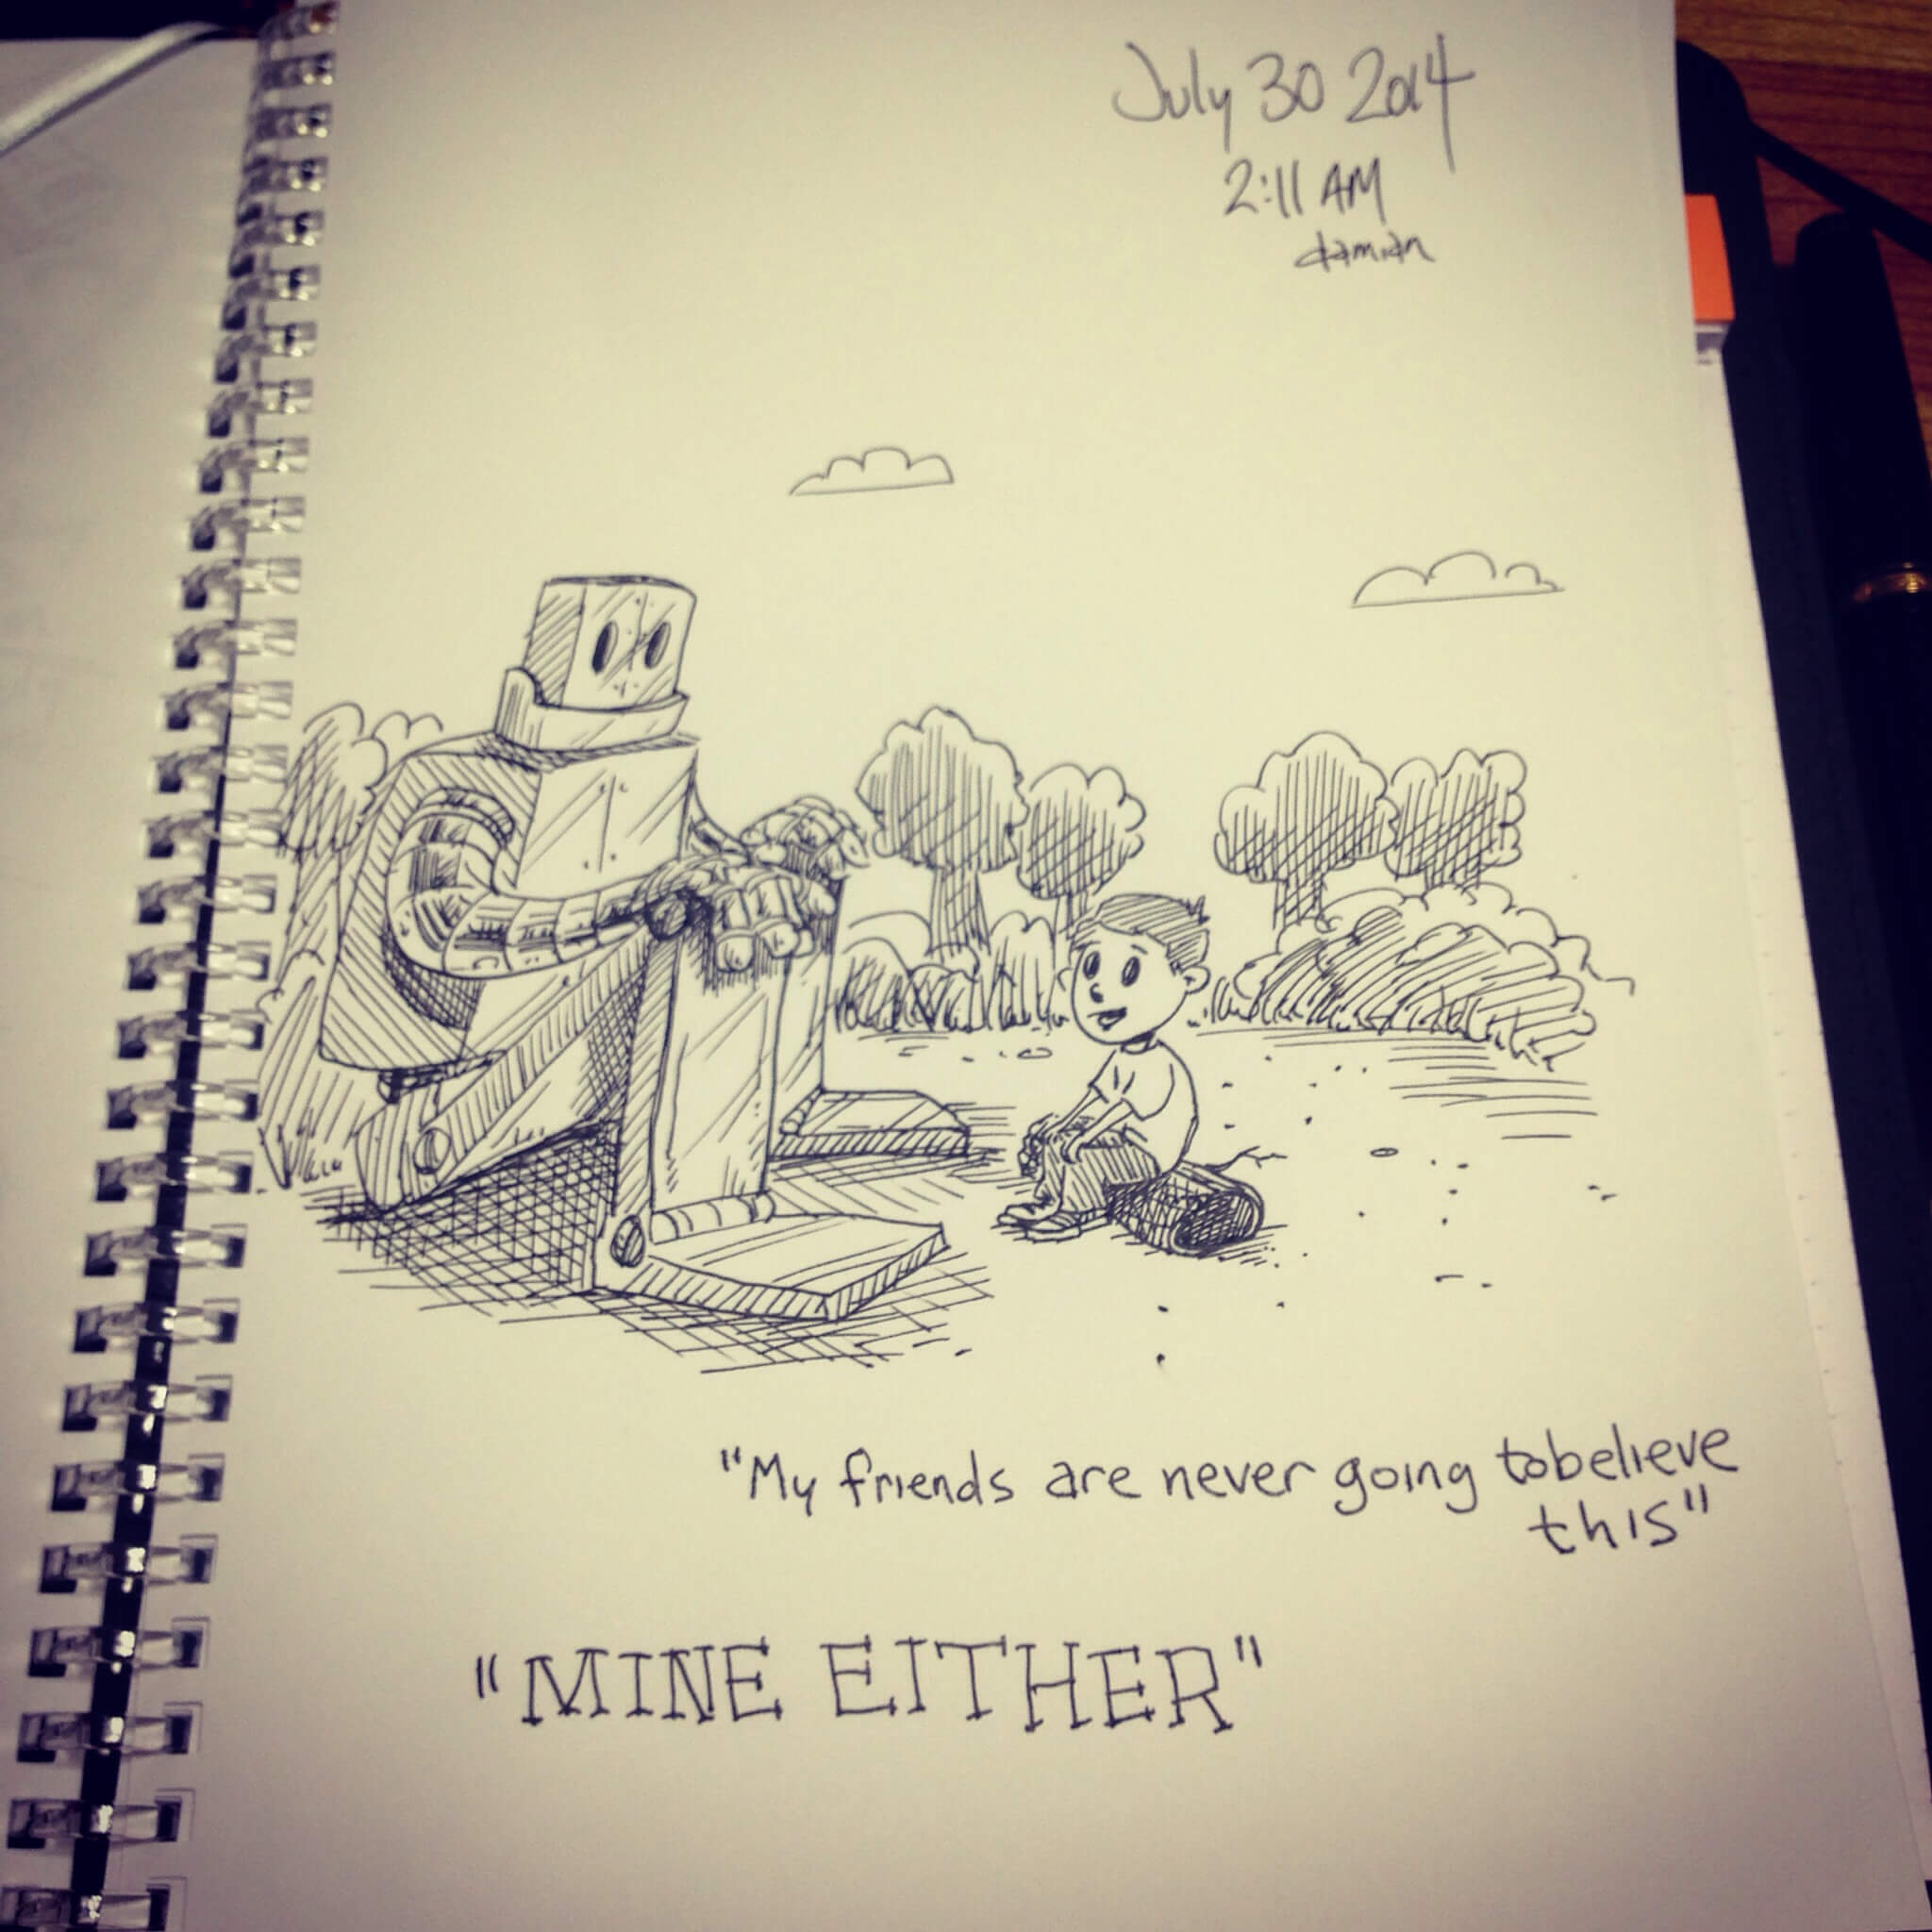 July 30 2014
2:11 AM
damian
"My friends are never going tobelieve
this"
"MINE EITHER"